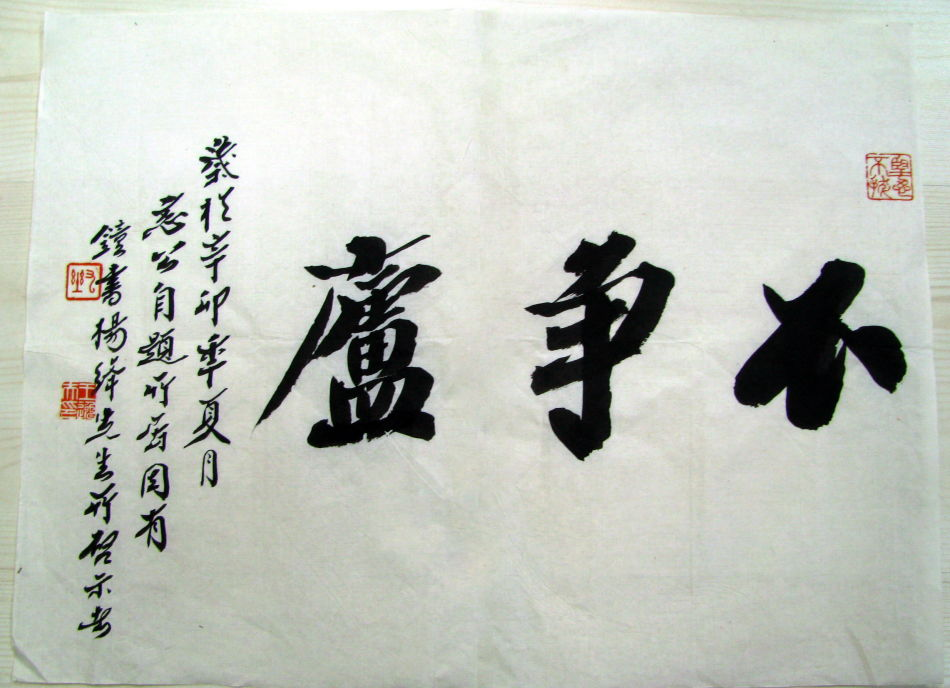 不争廬
歲於辛卯年夏月
愚公自題所居因有
鐘書楊絳先生所啓示者